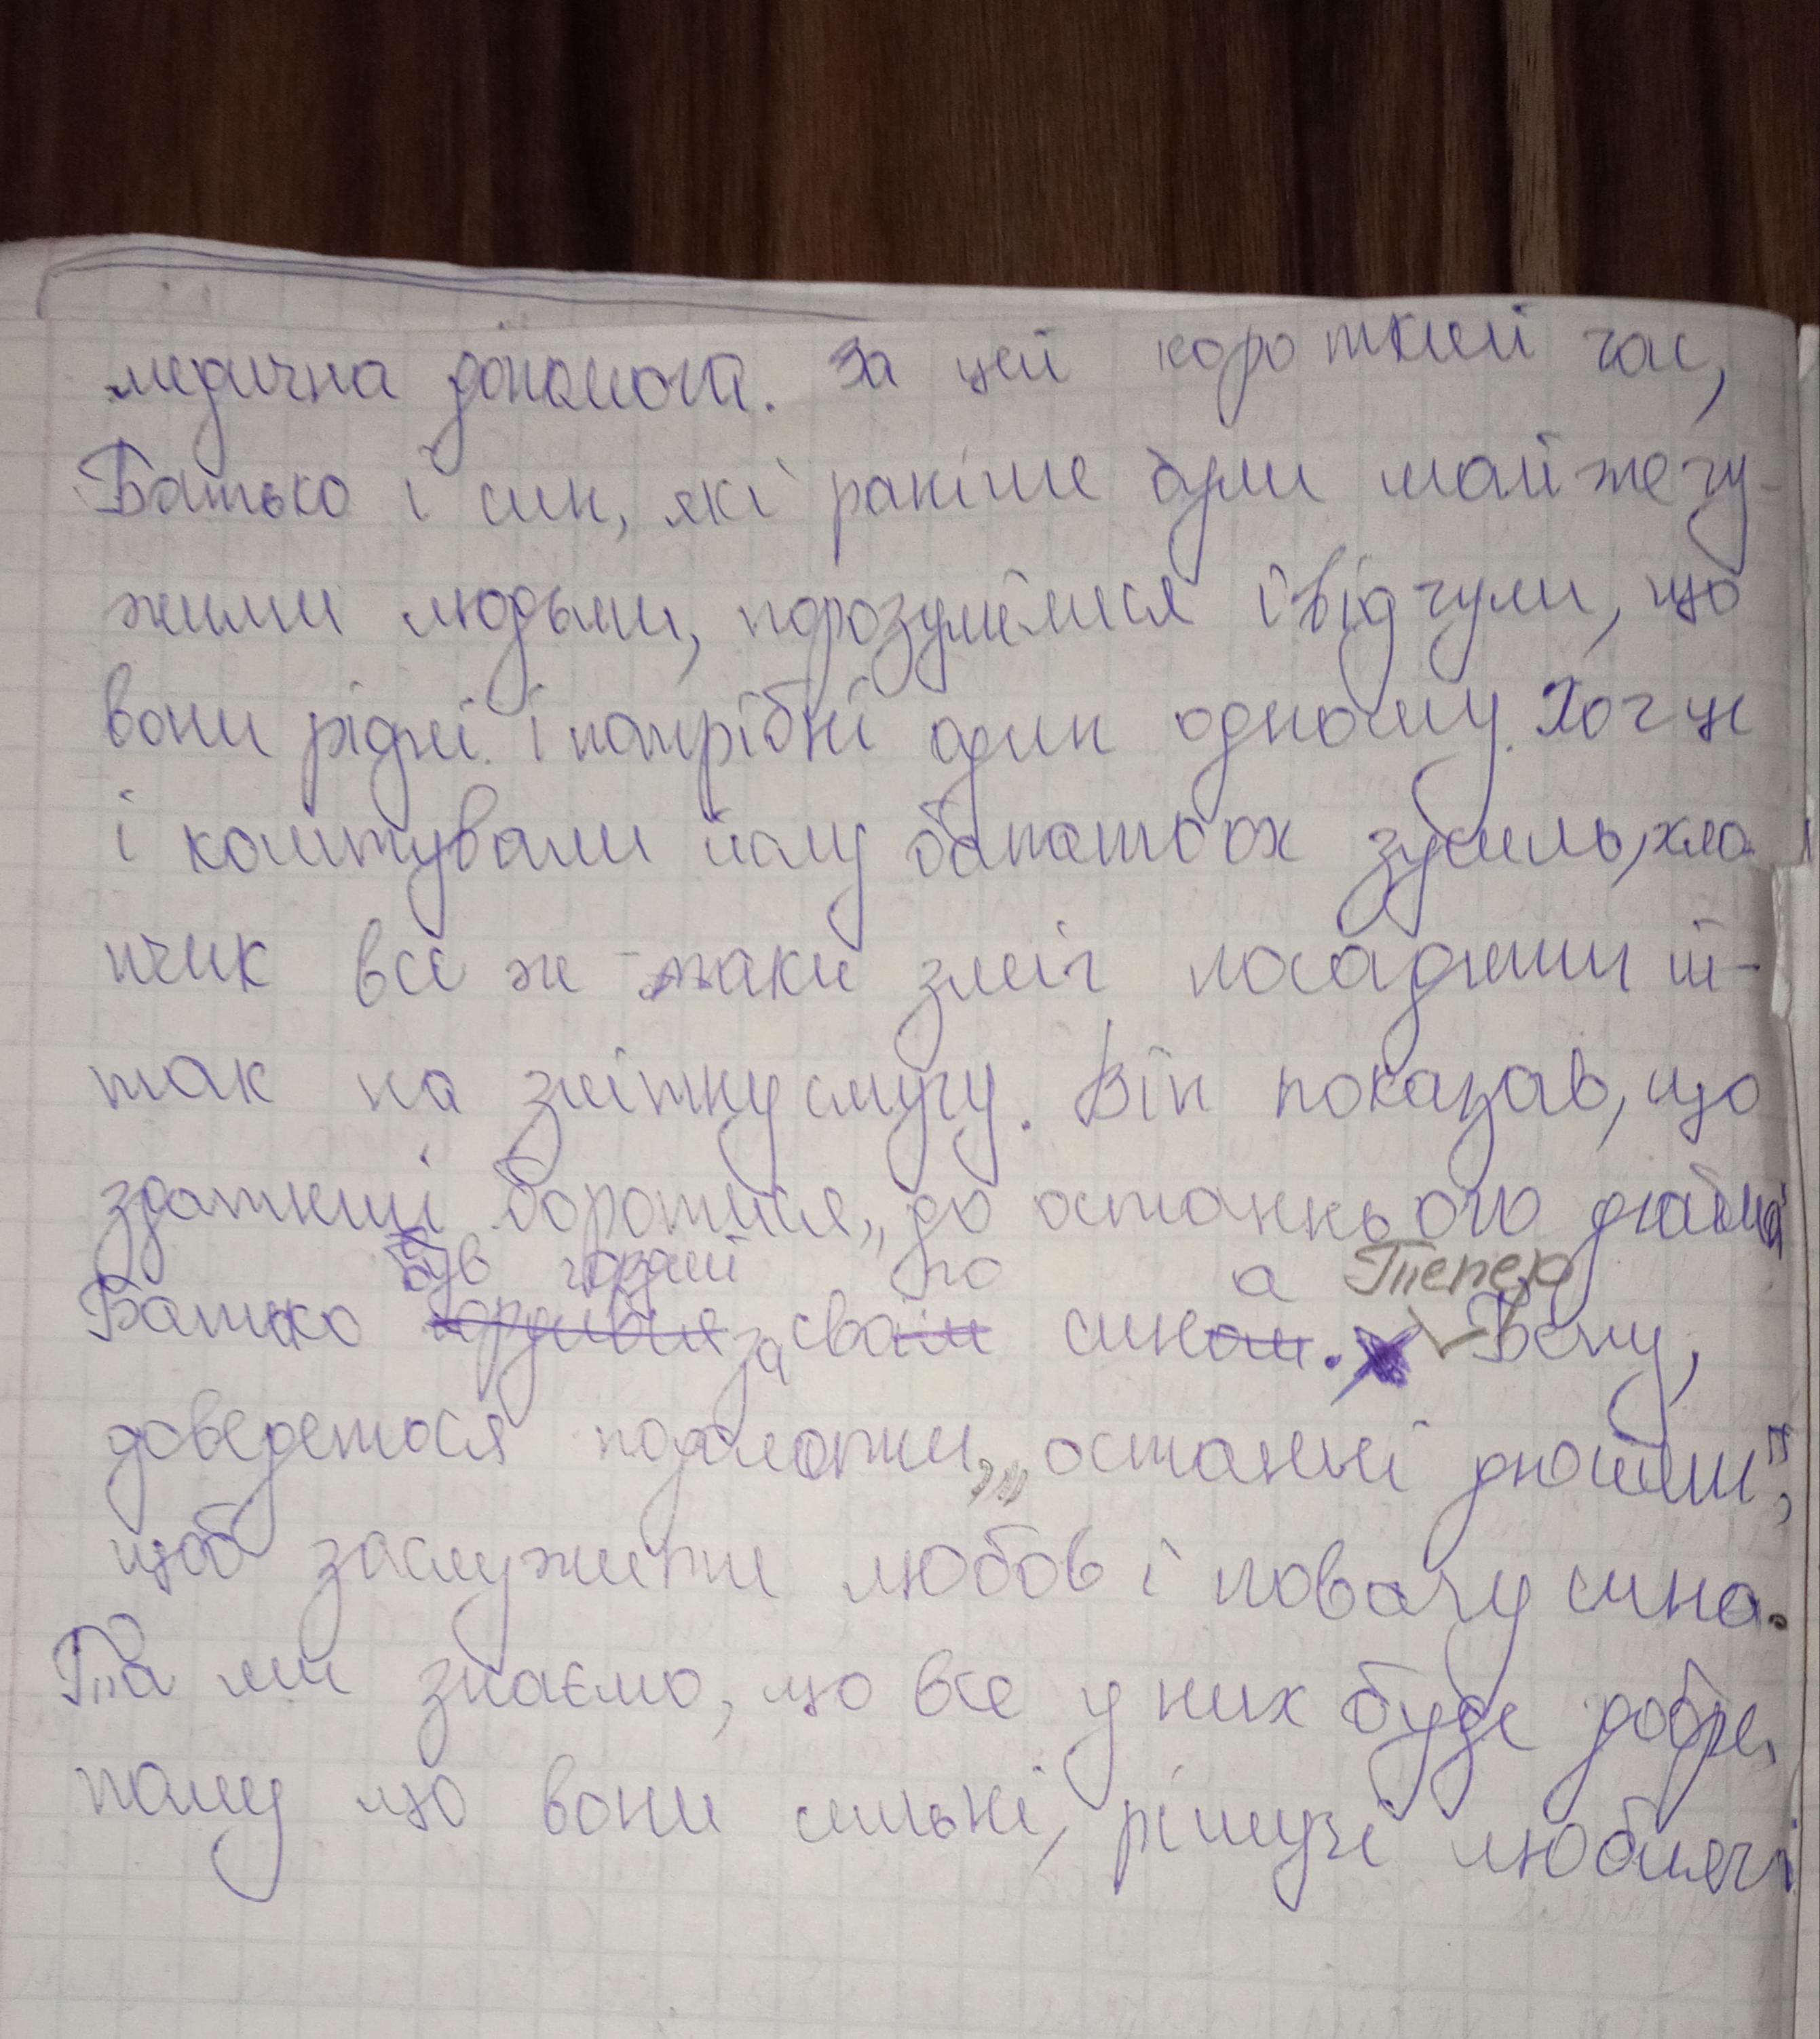 медична допомога. За цей короткий час,
Батько і син, які раніше були майже чу-
жими людьми, порозумілися і відчули, що
вони рідні і потрібні один одному. Хоч це
і коштували йому багатьох зусиль, хло
пчик все ж-таки зміг посадити лі-
так на злітну смугу. Він показав, що
здатний боротися „до останнього дюйма
був гордий го а Тепер
Батько за сво син. Бену,
доведеться подолати „останні дюйми",
щоб заслужити любов і повагу сина.
Та ми знаємо, що все у них буде добре,
тому що вони сильні, рішучі люблячі